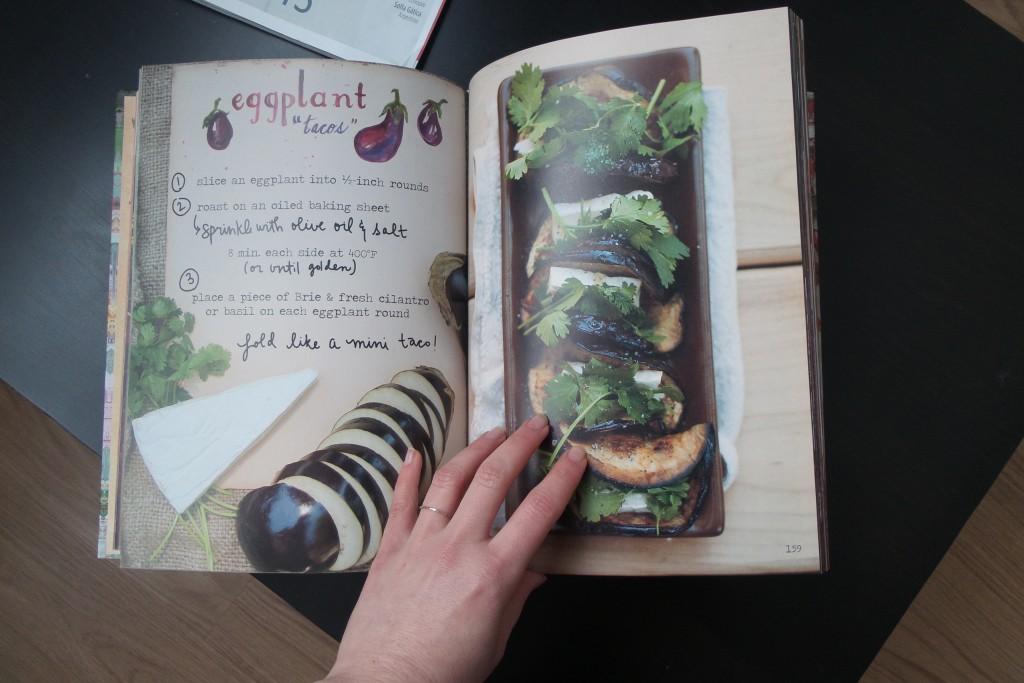 15
Sofía Gálica
Argentina
eggplant
"tacos"
1 slice an eggplant into ½-inch rounds
2 roast on an oiled baking sheet
↳ sprinkle with olive oil & salt
8 min. each side at 400°F
(or until golden)
3
place a piece of Brie & fresh cilantro
or basil on each eggplant round
fold like a mini taco!
159